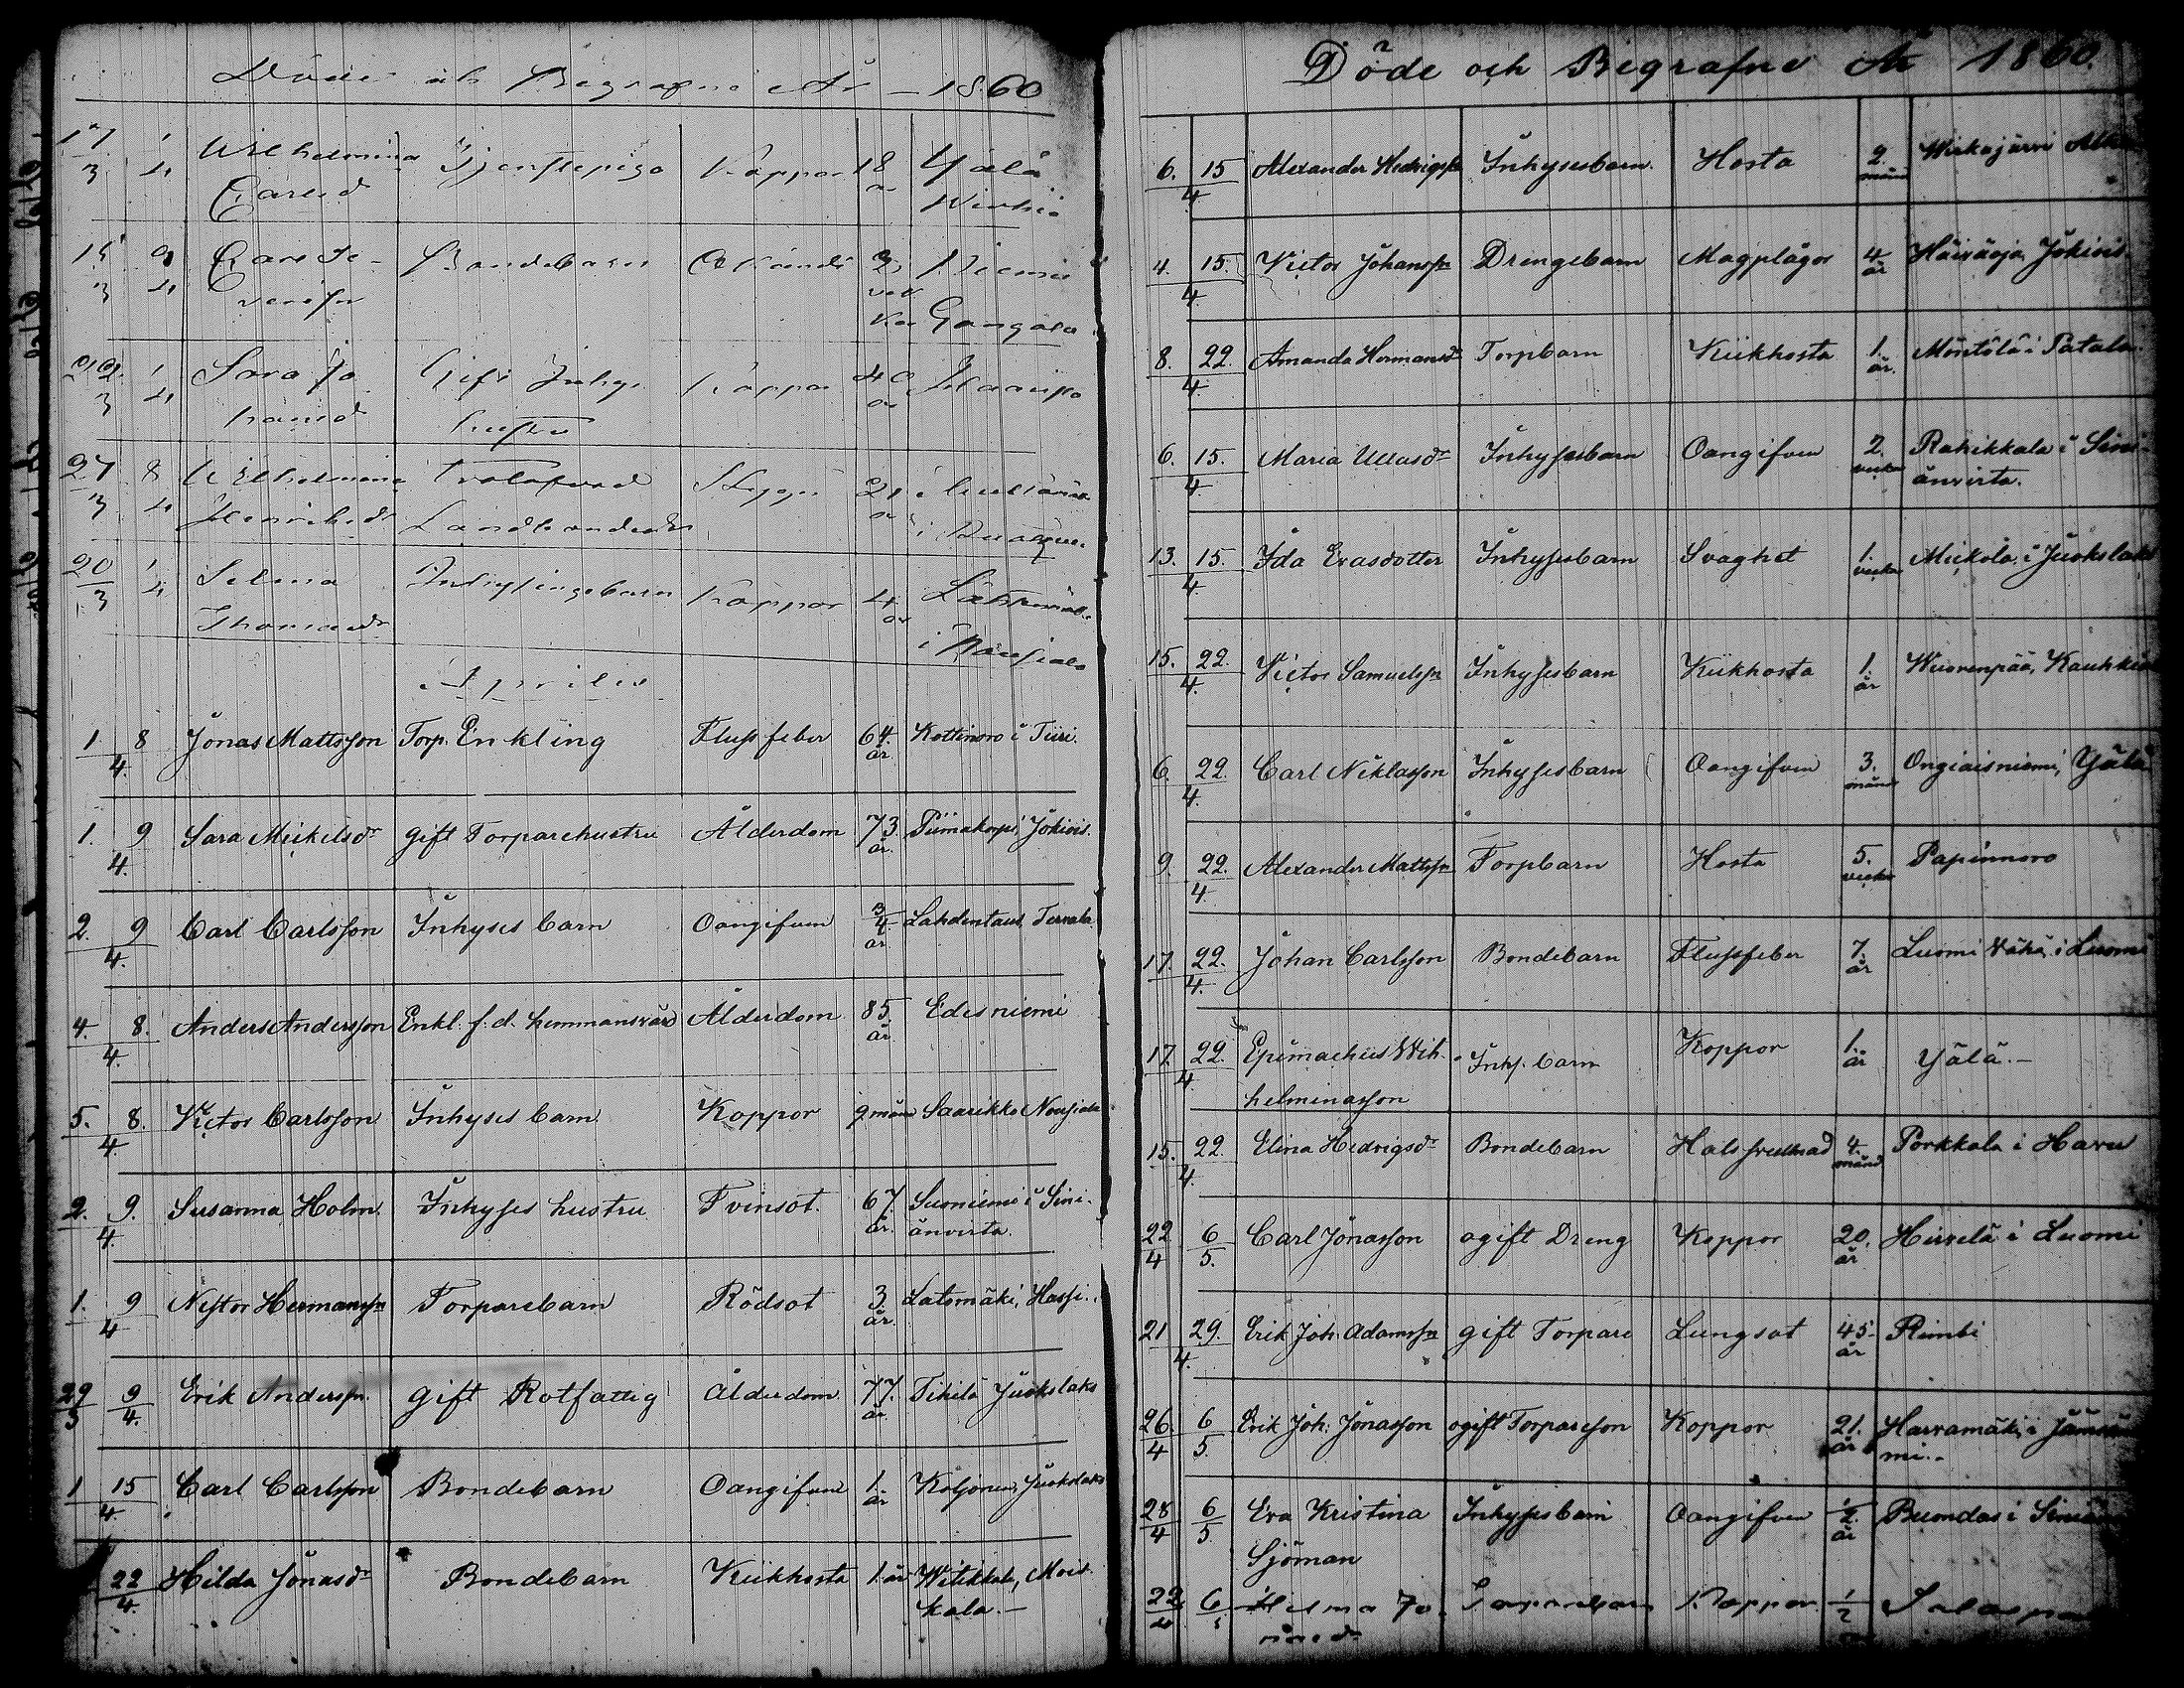 Döde och Begrafne År 1860
17/3 1/4 Wilhelmina Tjenstepiga Koppor 18 Yälä
Carlsd år
15/3 9/4 Carl Bondebarn Okänd 3 Niemi
27/3 8/4 Wilhelmina
Henriksdr
20/3 1/4 Selma Inhysingebarn Koppor 4
Thomasdr år i Nousiala
Aprilis
1. 8/4. Jonas Mattsson Torp. Enkling Flussfeber 64. år Kottinoro i Tiiri.
1. 9/4. Sara Mickelsdr gift Torparehustru Ålderdom 73. år. Piimakorpi, Jokiois.
2. 9/4. Carl Carlsson Inhyses barn Oangifven 3/4 år Lahdentaus, Tervala.
4. 8./4. Anders Andersson Enkl. f.d. hemmansväro Ålderdom 85. år Edesniemi
5. 8./4. Victor Carlsson Inhyses barn Koppor 9 mån Saarikko Nousiala
2. 9./4. Susanna Holm. Inhyses hustru Tvinsot. 67. år. Suoniemi i Sini-
änvirta.
1. 9/4 Nestor Hermanssn Torparebarn Rödsot 3. år. Latomäki, Hassi.
29/3 9/4. Erik Anderssn. gift Rotfattig Ålderdom 77. år Tihilä Juokslaks
1 15/4. Carl Carlsson Bondebarn Oangifven 1. år Koljonen, Juokslaks
22/4. Hilda Jonasdr Bondebarn Kikhosta 1. år Witikkala, Mois-
kala.–
Döde och Begrafne År 1860.
6. 15/4. Alexander Hedrigssn Inhysesbarn. Hosta 2. månd Wirkajärvi
4. 15./4. Victor Johanssn Drengebarn Magplågor 4 år Häiväoja, Jokiois.
8. 22./4. Amanda Hermansdr Torpbarn Kikhosta 1. år. Möntölä i Patala.
6. 15./4. Maria Ullasdr Inhysesbarn Oangifven 2. veckor Rahikkala i Sini-
änvirta.
13. 15./4. Ida Evasdotter Inhysesbarn Svaghet 1. vecka Mickola i Juokslaks
15. 22./4. Victor Samuelssn Inhysesbarn Kikhosta 1. år Wuorenpää,
6. 22./4. Carl Niklasson Inhysesbarn Oangifven 3. månd Ongiaisniemi, Yälä
9. 22./4. Alexander Mattssn Torpbarn Hosta 5. veckor Papinnoro
17. 22./4. Johan Carlsson Bondebarn Flussfeber 7. år Luomi Wähä i Luomi
17. 22./4. Epimachus Wil- Inhs. barn Koppor 1. år Yälä.–
helminasson
15. 22./4. Elina Hedvigsdr Bondebarn Halssvullnad 4. månd Porkkala i Havu
22/4 6/5. Carl Jonasson ogift Dreng Koppor 20. år Hirvelä i Luomi
21 29./4. Erik Joh. Adamssn gift Torpare Lungsot 45 år Rimbi
26./4 6/5. Erik Joh. Jonasson ogift Torpareson Koppor 21. år Harramäki i
mi.
28/4 6/5. Eva Kristina Inhysesbarn Oangifven 1/2 år Buondas i
Sjöman
22/4 6/5 Koppor 1/2